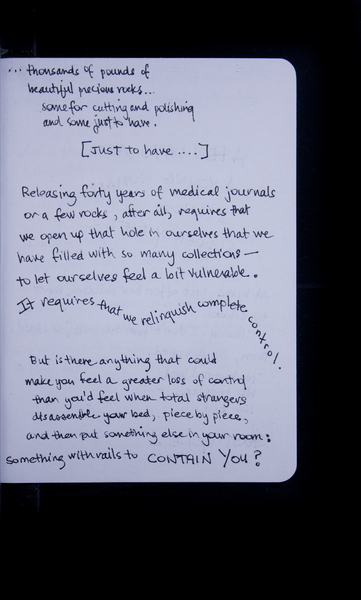 ... thousands of pounds of
beautiful precious rocks...
some for cutting and polishing
and some just to have.
[JUST TO HAVE ....]
Releasing forty years of medical journals
or a few rocks, after all, requires that
we open up that hole in ourselves that we
have filled with so many collections —
to let ourselves feel a bit vulnerable.
It requires that we relinquish complete control.
But is there anything that could
make you feel a greater loss of control
than you'd feel when total strangers
disassemble your bed, piece by piece,
and then put something else in your room:
something with rails to CONTAIN YOU?